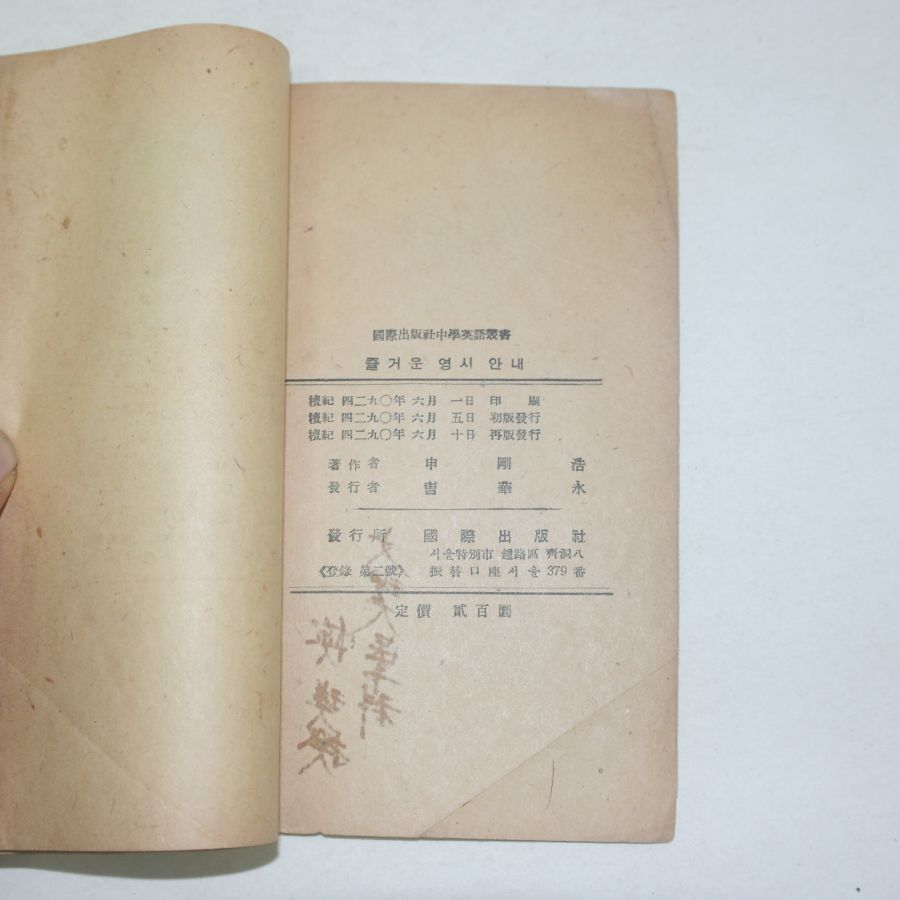 國際出版社中學英語叢書
즐거운 영시 안내
檀紀 四二九〇年 六月 一日 印刷
檀紀 四二九〇年 六月 五日 初版發行
檀紀 四二九〇年 六月 十日 再版發行
著作者 申剛浩
發行者 曺華永
發行所 國際出版社
서울特別市 鍾路區 齊洞八
《登錄 第二號》 振替口座서울379番
定價 貳百圜